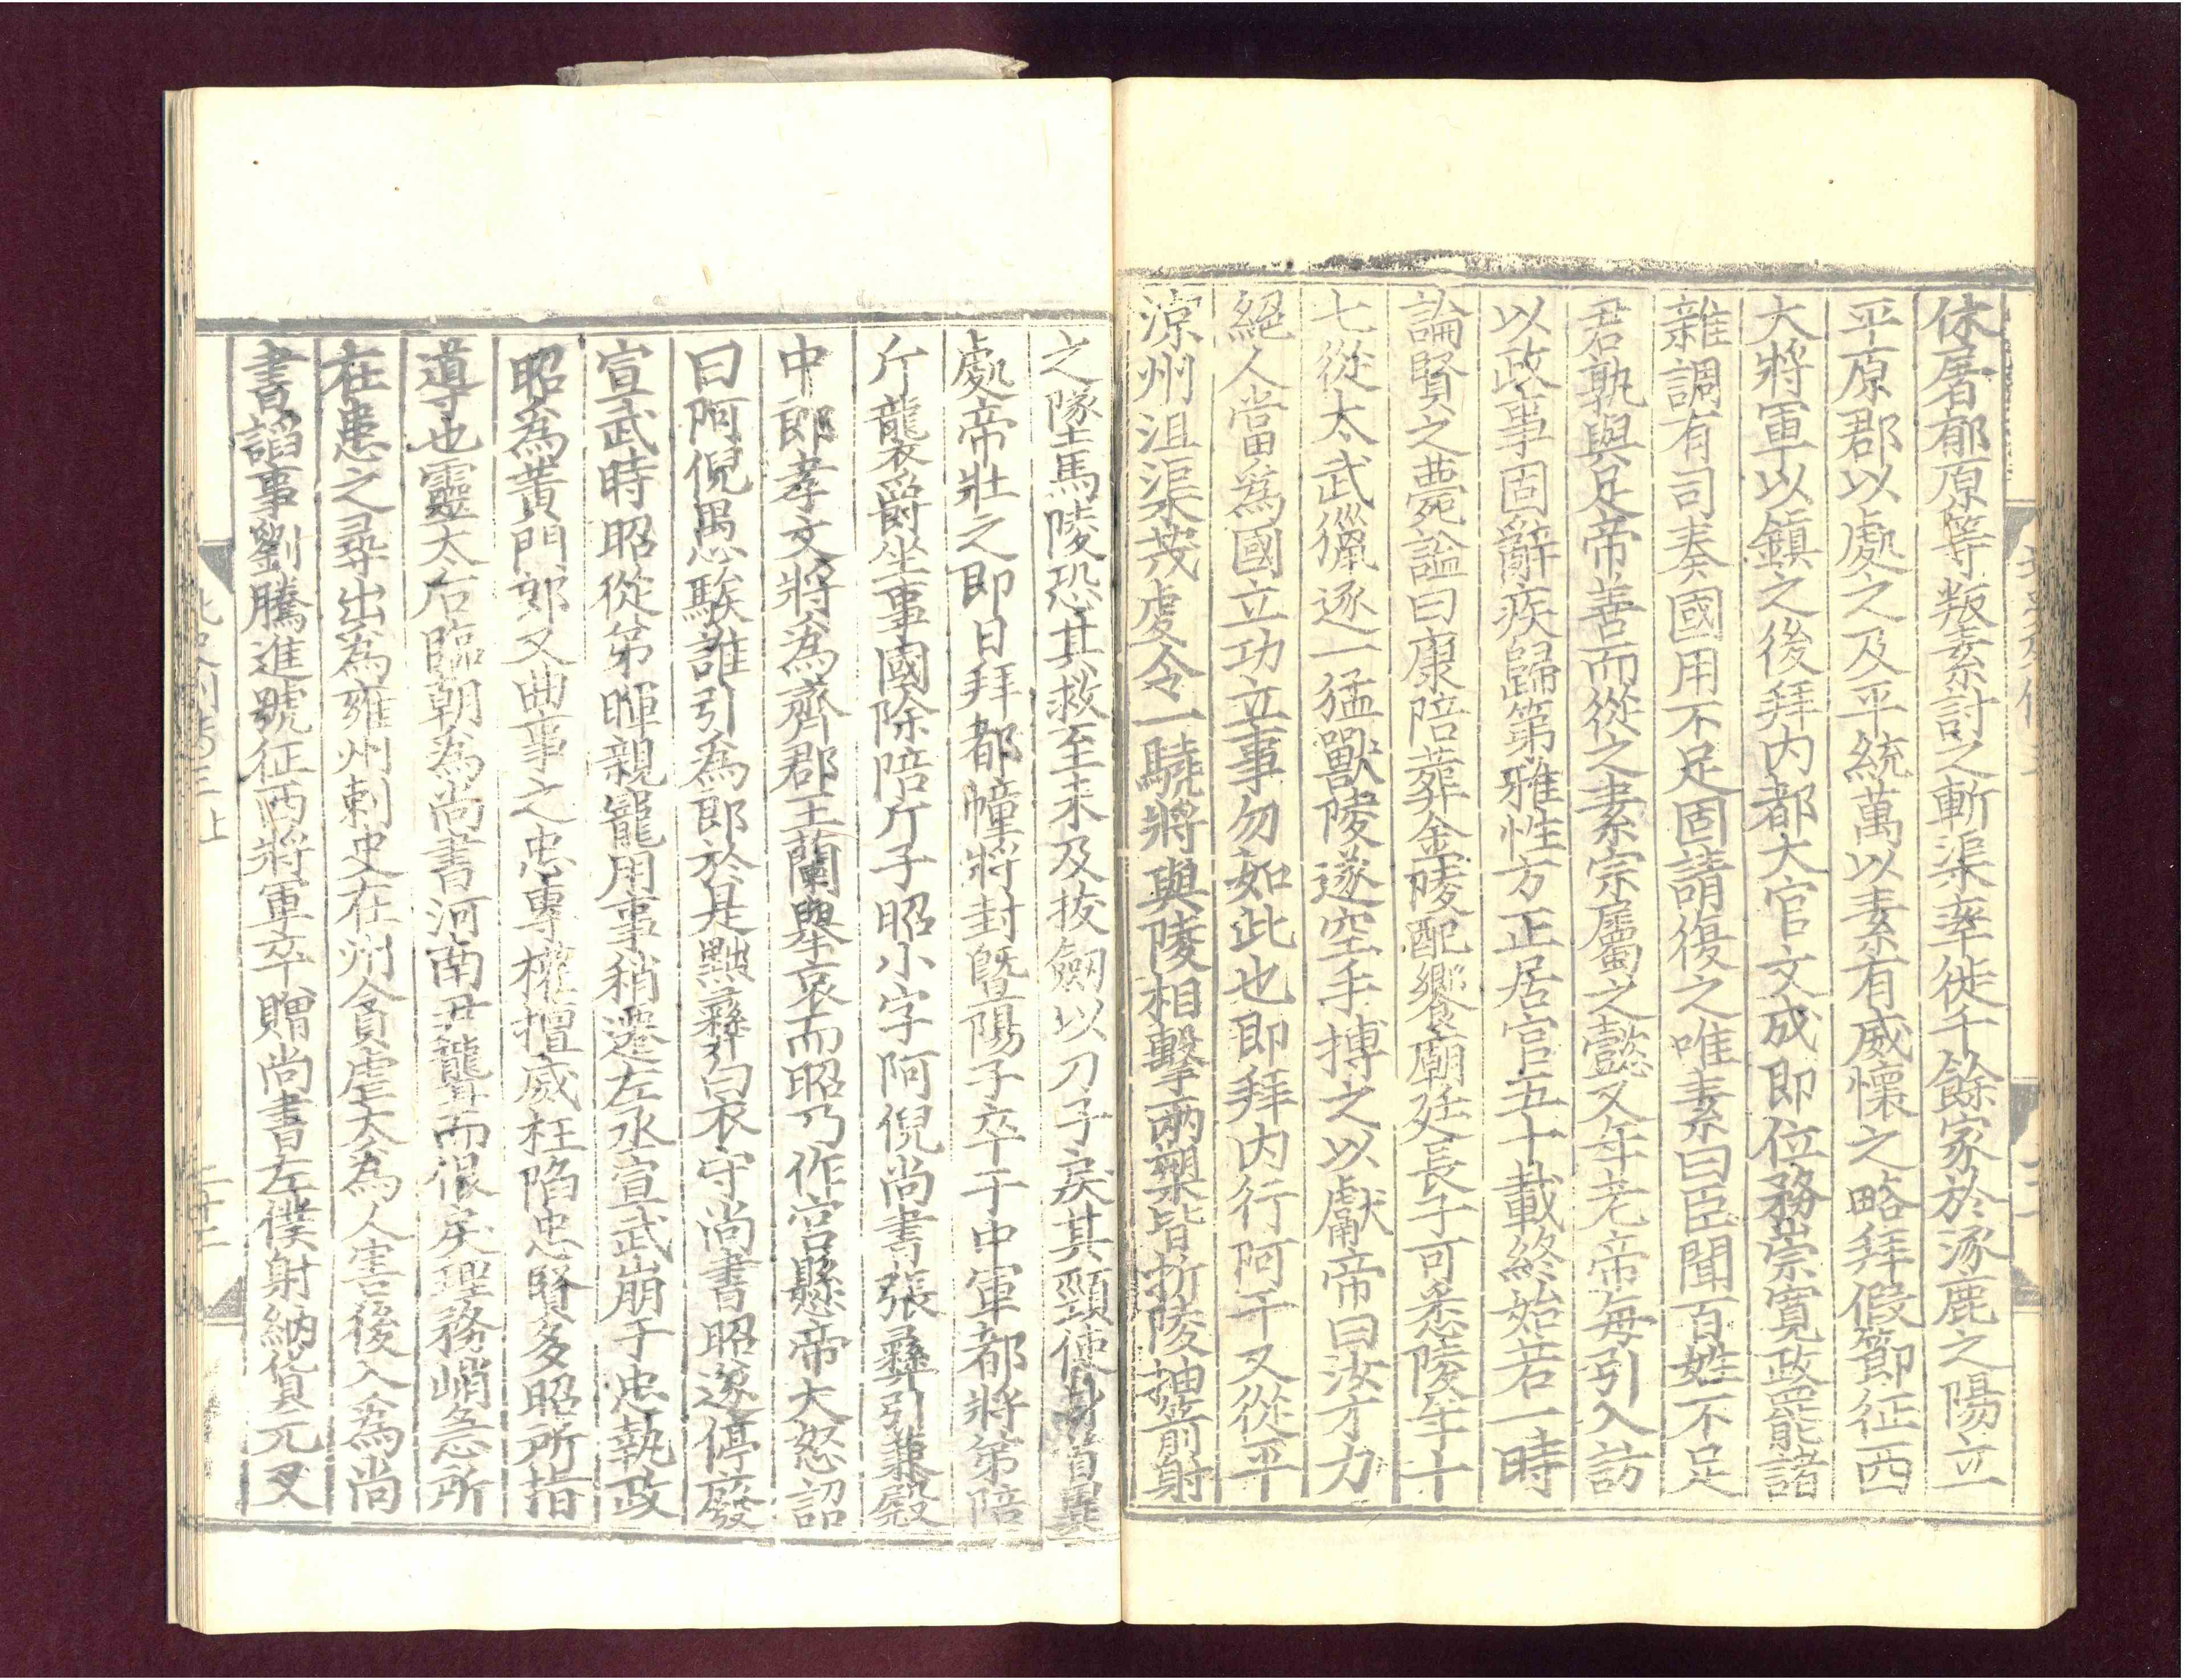 休屠郁原等叛素討之斬渠率徙千餘家於涿鹿之陽立
平原郡以處之及平統萬以素有威懷之略拜假節征西
大將軍以鎮之後拜内都大官文成即位務崇寛政罷諸
雜調有司奏國用不足固請復之唯素曰臣聞百姓不足
君孰與足帝善而從之素宗屬之懿又年老帝每引入訪
以政事固辭疾歸第雅性方正居官五十載終始若一時
論賢之薨謚曰康陪葬金陵配饗廟廷長子可悉陵年十
七從太武獵逐一猛獸陵遂空手搏之以獻帝曰汝才力
絕人當爲國立功立事勿如此也即拜内行阿干又從平
涼州沮渠茂虔令一驍將與陵相擊兩槊皆折陵抽箭射
之墜馬陵恐其救至未及拔劒以刀子戾其頸使身首異
處帝壯之即日拜都幢將封曁陽子卒于中軍都將弟陪
斤襲爵坐事國除陪斤子昭小字阿倪尚書張彞引兼殿
中郎孝文將為齊郡王蘭舉哀而昭乃作宮懸帝大怒詔
曰阿倪愚騃誰引為郎於是黜彞白衣守尚書昭遂停廢
宣武時昭從弟暉親寵用事稍遷左丞宣武崩于忠執政
昭為黄門郎又曲事之忠專權擅威枉陷忠賢多昭所指
導也靈太后臨朝為尚書河南尹聾而佷戾理務峭急所
在患之尋出為雍州刺史在州貪虐大為人害後入為尚
書諂事劉騰進號征西將軍卒贈尚書左僕射納貨元叉
北史列傳三上
二十二